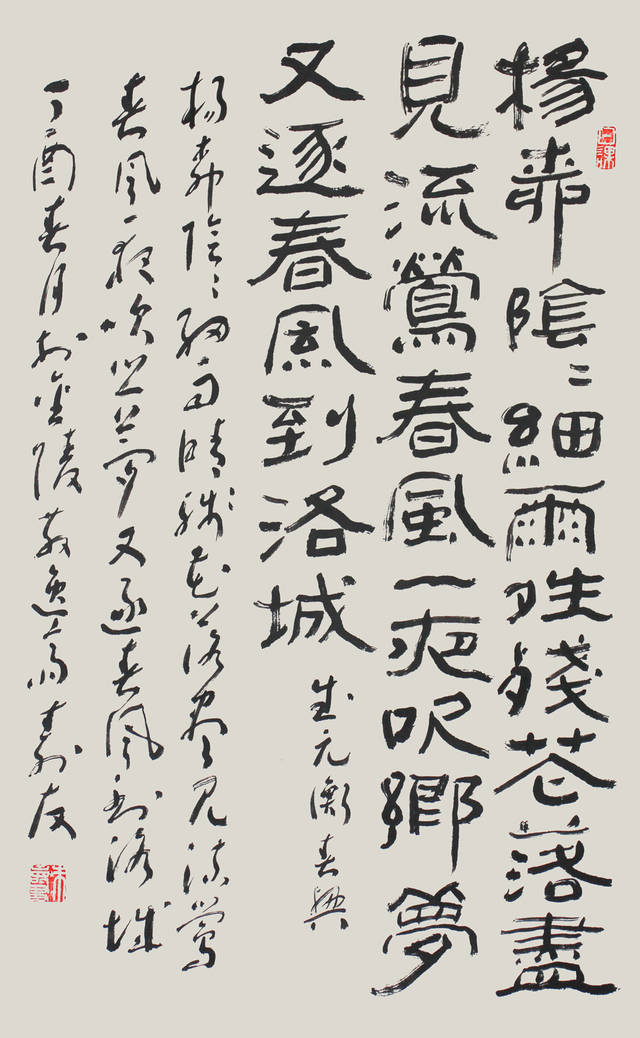 楊桺陰〻細雨夝殘花落盡
見流鶯春風一夜吹鄉夢
又逐春風到洛城
武元衡春興
楊桺陰〻細雨晴殘花落盡見流鶯
春風一夜吹鄉夢又逐春風到洛城
丁酉春月於金陵散逸齋壽友
日課